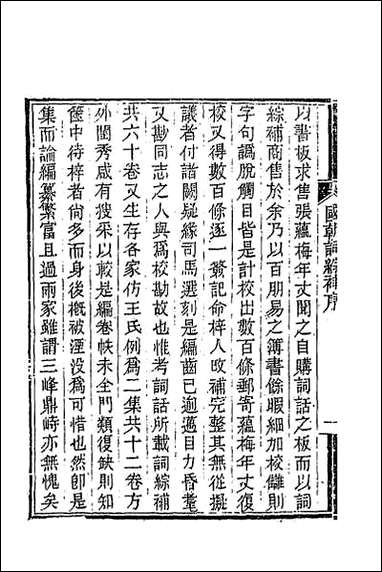 國朝詞綜補序
一
以書板求售張蘊梅年丈聞之自購詞話之板而以詞
綜補商售於余乃以百朋易之簿書餘暇細加校讎則
字句譌脫觸目皆是計校出數百條郵寄蘊梅年丈復
校又得數百條逐一簽記命梓人改補完整其無從擬
議者付諸闕疑緣司馬選刻是編齒已逾邁目力昏耄
又尠同志之人與爲校勘故也惟考詞話所載詞綜補
共六十卷又生存各家仿王氏例爲二集共十二卷方
外閨秀咸有搜采以較是編卷帙未全門類復缺則知
篋中待梓者尙多而身後槪被湮没爲可惜也然卽是
集而論編纂繁富且過兩家雖謂三峰鼎峙亦無愧矣